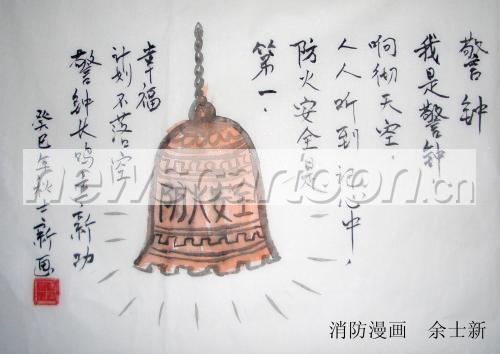 警钟
我是警钟
响彻天空，
人人听到记心中，
防火安全是
第一．
幸福
计划不落空
警钟长鸣立新功
癸巳年秋士新画
防火安全
消防漫画 余士新